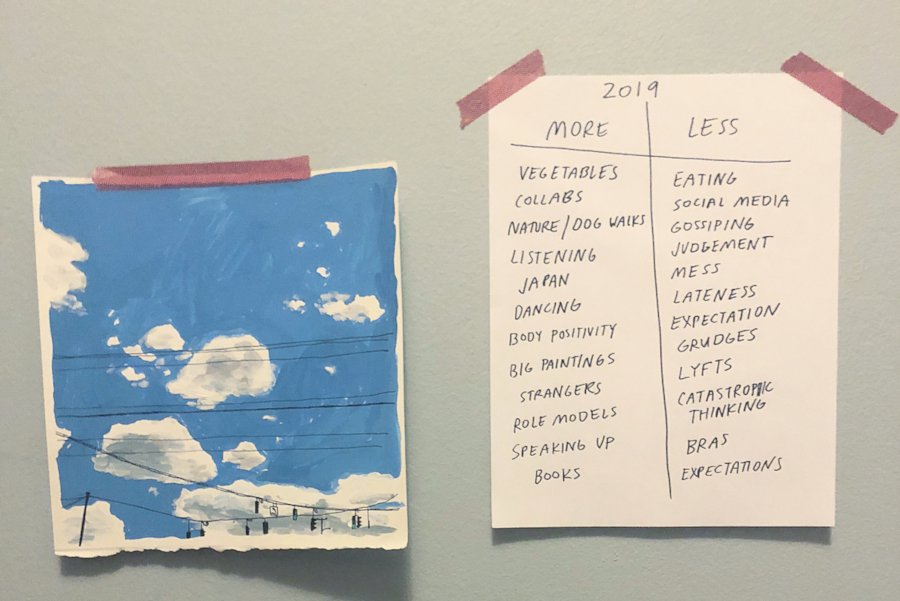 2019
MORE
LESS
VEGETABLES
COLLABS
NATURE/DOG WALKS
LISTENING
JAPAN
DANCING
BODY POSITIVITY
BIG PAINTINGS
STRANGERS
ROLE MODELS
SPEAKING UP
BOOKS
EATING
SOCIAL MEDIA
GOSSIPING
JUDGEMENT
MESS
LATENESS
EXPECTATION
GRUDGES
LYFTS
CATASTROPHIC
THINKING
BRAS
EXPECTATIONS